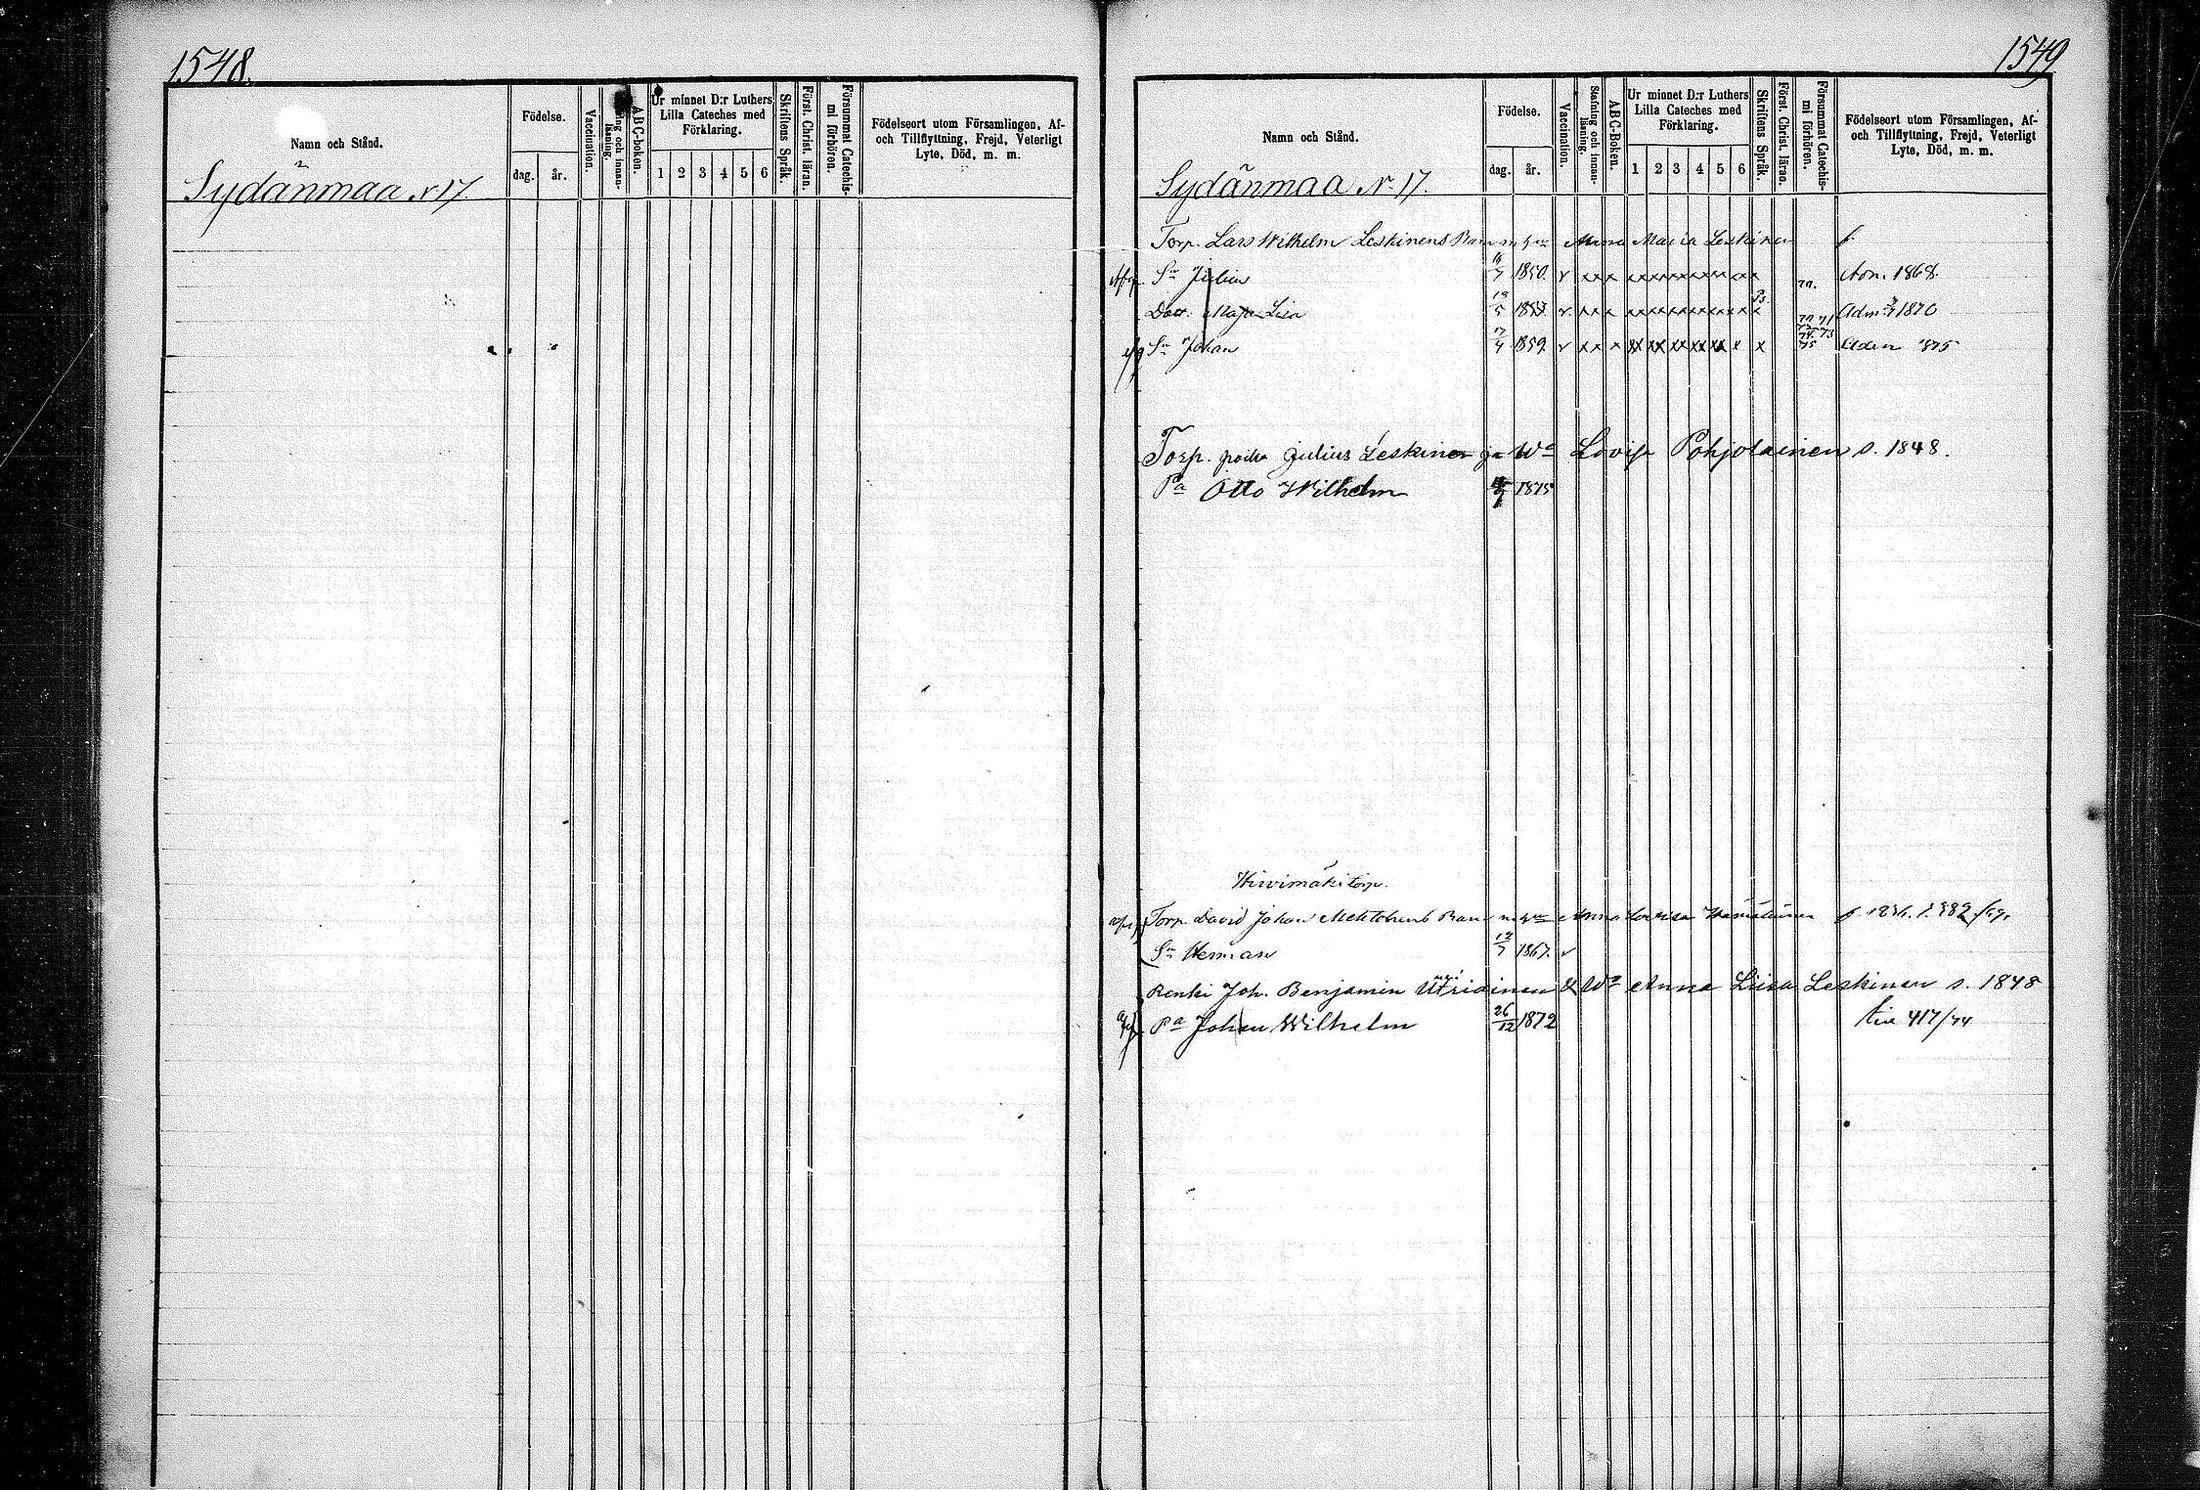 1548.
Namn och Stånd.
Födelse.
dag. år.
Vaccination.
ABC-boken.
Ur minnet D:r Luthers Lilla Cateches med Förklaring.
1 2 3 4 5 6
Skriftens Språk.
Först. Christ. läran.
Försummat Catechismi förhören.
Födelseort utom Församlingen, Af- och Tillflyttning, Frejd, Veterligt Lyte, Död, m. m.
Sydänmaa N 17.
1549
Namn och Stånd.
Födelse.
dag. år.
Vaccination.
Stafning och innanläsning.
ABC-Boken.
Ur minnet D:r Luthers Lilla Cateches med Förklaring.
1 2 3 4 5 6
Skriftens Språk.
Först. Christ. läran.
Försummat Catechismi förhören.
Födelseort utom Församlingen, Af- och Tillflyttning, Frejd, Veterligt Lyte, Död, m. m.
Sydänmaa N. 17.
Torp. Lars Wilhelm Leskinens Barn m Maria Leskinen f.
Sn Julius 1850. v xxx Adm. 1868.
Dott. Maja Lisa v xxx Adm 1870
Sn Johan 17/4 1859 v xx x Adm 1875
Torp. poika Julius Leskinen ja Wo Lovisa Pohjolainen s. 1848.
Pa Otto Wilhelm 1875
Hirvimäki torp.
Torp. David Johan Barn m Anna Lovisa f.
Sn Herman 1867. v
Renki Joh. Benjamin & Wo Anna Liisa Leskinen s. 1848
Pa Johan Wilhelm 26/12 1872 417/74